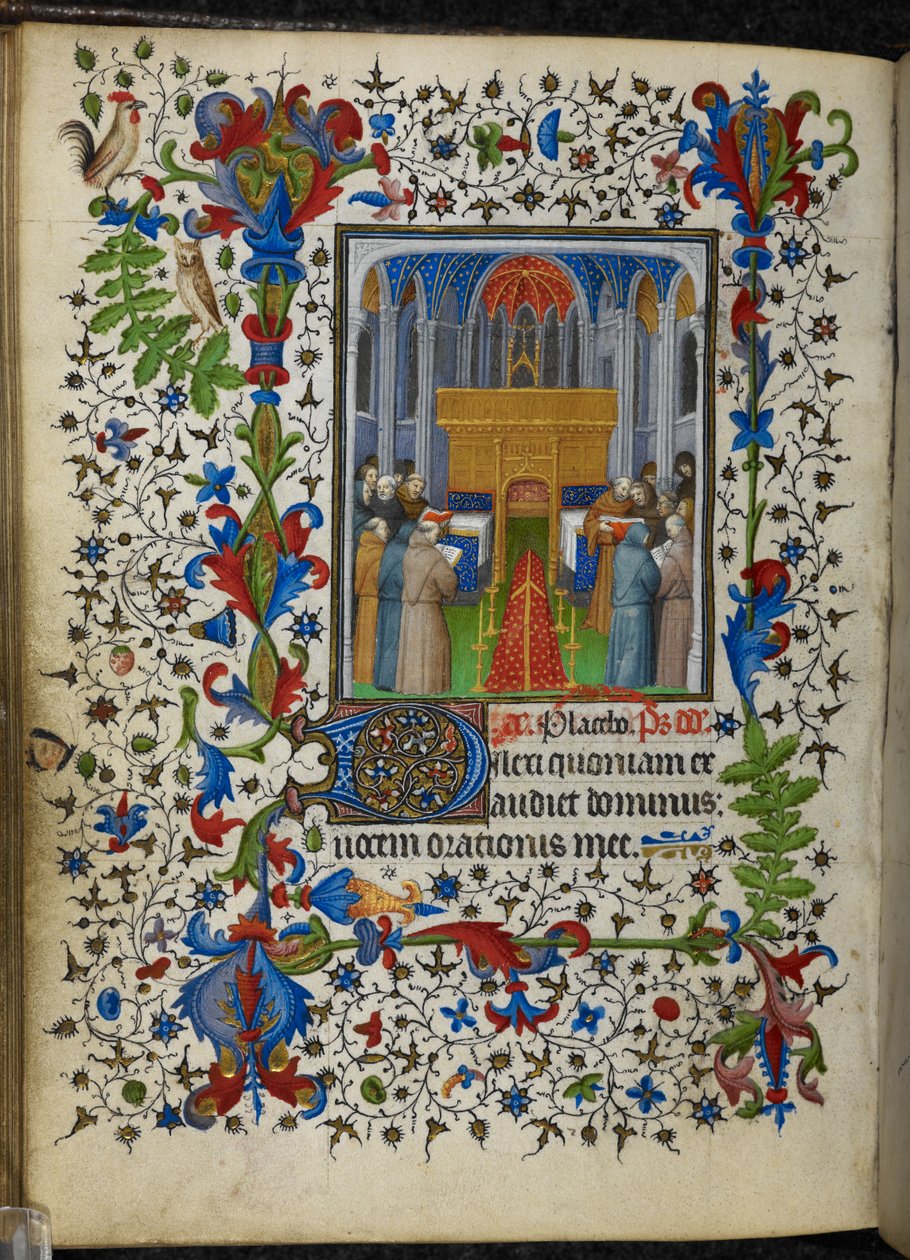 añ. Placebo. Ps dd.
Dilexi quoniam ex
audiet dominus:
uocem orationis mee.